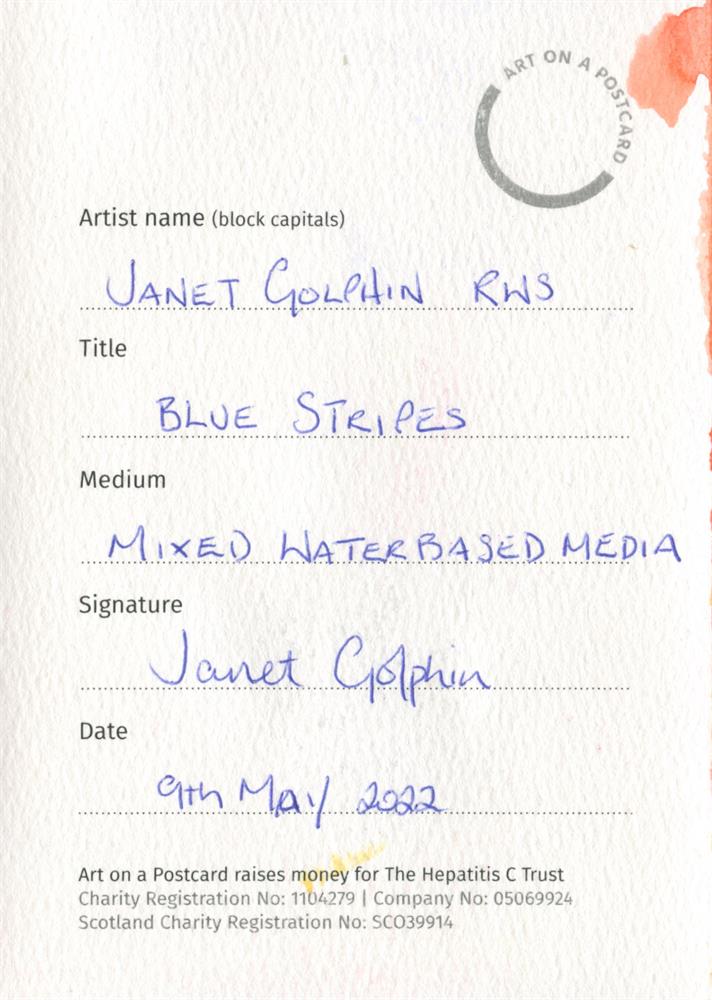 ART ON A POSTCARD
Artist name (block capitals)
JANET GOLPHIN RWS
Title
BLUE STRIPES
Medium
MIXED WATERBASED MEDIA
Signature
Janet Golphin
Date
9th MAY 2022
Art on a Postcard raises money for The Hepatitis C Trust
Charity Registration No: 1104279 | Company No: 05069924
Scotland Charity Registration No: SCO39914